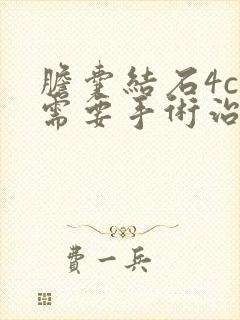 膽囊結石4c
需要手術治
費一兵